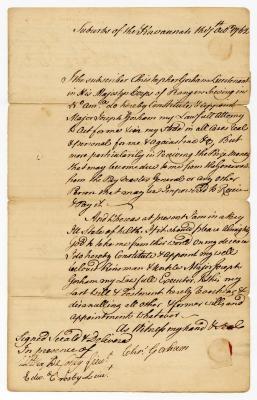 Suburbs of the Havannah the 7th Octr 1762
I the subscriber Christopher Gorham Lieutenant
in His Majestys Corps of Rangers Serving in
Do hereby Constitute & Appoint
Major Joseph Gorham my Lawfull Attorny
to Act for me in my Stead in all Cases real
& personal for me & against me &c. But
more particularly in Receiving the Pay, Money
that may become due to me from
from the Pay Master General or any other
Person that may be Impowered to Receive
And whereas at present I am in a very
Ill State of helth & If it should please Almighty
God to take me from this world on my decease
I do hereby Constitute & Appoint my well
beloved Kinsman Major Joseph
Gorham my Lawfull Executor to this my
last Will & Testment hereby Revokeing &
disanulling all other former wills and
appointments whatever
As Witness my hand & Seal
Signed Seal'd & Delivered
In presence of
Chrisr. Gorham
Edw Crosby Lieut.